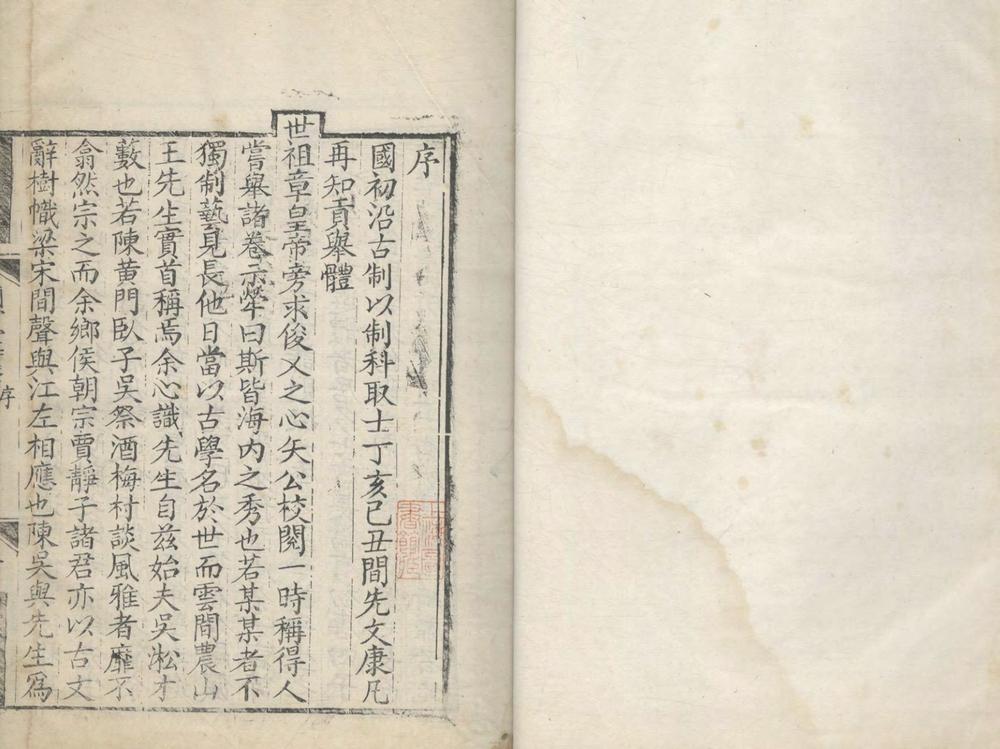 序
國初沿古制以制科取士丁亥己丑間先文康凡
再知貢舉體
世祖章皇帝旁求俊乂之心矢公校閱一時稱得人
嘗舉諸卷示犖曰斯皆海內之秀也若某某者不
獨制藝見長他日當以古學名於世而雲間農山
王先生實首稱焉余心識先生自茲始夫吳淞才
藪也若陳黃門臥子吳祭酒梅村談風雅者靡不
翕然宗之而余鄉侯朝宗賈靜子諸君亦以古文
辭樹幟梁宋間聲與江左相應也陳吳與先生爲
序